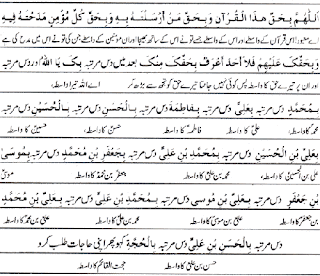 اَللّٰهُمَّ بِحَقِّ هٰذَا الْقُرْآنِ وَبِحَقِّ مَنْ اَرْسَلْتَهٗ بِهٖ وَبِحَقِّ كُلِّ مُؤْمِنٍ مَدَحْتَهٗ فِيْهِ
اے معبود! اس قرآن کے واسطے اور اس کے واسطے جسے تو نے اس کے ساتھ بھیجا اور ان مومنین کے واسطے جن کی تو نے اس میں مدح کی ہے
وَبِحَقِّكَ عَلَيْهِمْ فَلَا اَحَدَ اَعْرَفُ بِحَقِّكَ مِنْكَ بعد میں دس مرتبہ بِكَ يَا اَللهُ اور دس مرتبہ
اور ان پر تیرے حق کا واسطہ پس کوئی نہیں جانتا تیرے حق کو تجھ سے بڑھ کر اے اللہ تیرا واسطہ
بِمُحَمَّدٍ دس مرتبہ بِعَلِيٍّ دس مرتبہ بِفَاطِمَةَ دس مرتبہ بِالْحَسَنِ دس مرتبہ بِالْحُسَيْنِ دس مرتبہ
محمد کا واسطہ علی کا واسطہ فاطمہ کا واسطہ حسن کا واسطہ حسین کا واسطہ
بِعَلِيِّ بْنِ الْحُسَيْنِ دس مرتبہ بِمُحَمَّدِ بْنِ عَلِيٍّ دس مرتبہ بِجَعْفَرِ بْنِ مُحَمَّدٍ دس مرتبہ بِمُوسَى
علی بن الحسین کا واسطہ محمد بن علی کا واسطہ جعفر بن محمد کا واسطہ موسیٰ
بْنِ جَعْفَرٍ دس مرتبہ بِعَلِيِّ بْنِ مُوسٰى دس مرتبہ بِمُحَمَّدِ بْنِ عَلِيٍّ دس مرتبہ بِعَلِيِّ بْنِ مُحَمَّدٍ
بن جعفر کا واسطہ علی بن موسیٰ کا واسطہ محمد بن علی کا واسطہ علی بن محمد کا واسطہ
دس مرتبہ بِالْحَسَنِ بْنِ عَلِيٍّ دس مرتبہ بِالْحُجَّةِ کہو پھر اپنی حاجات طلب کرو
حسن بن علی کا واسطہ حجت القائم کا واسطہ